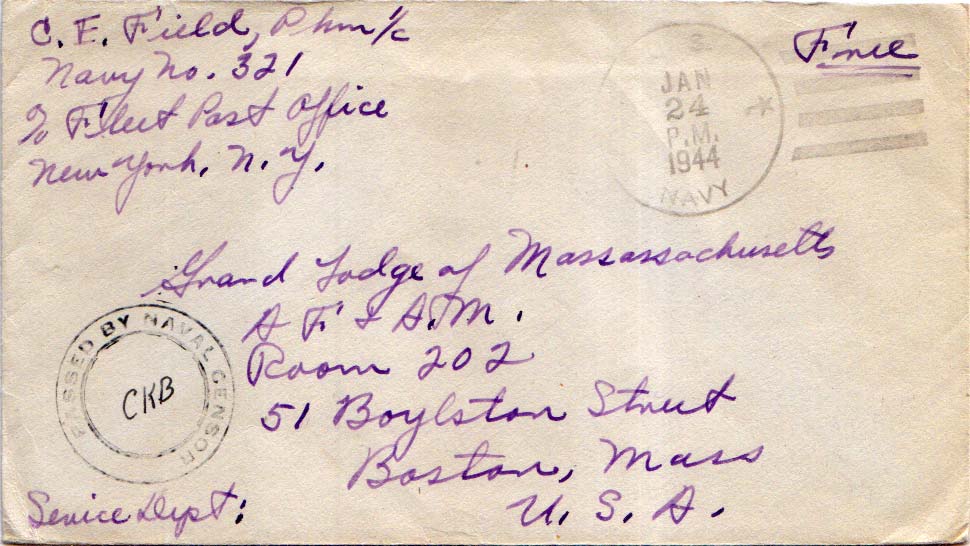 C. E. Field, Phm 1/c
Navy No. 321
℅ Fleet Post Office
New York, N. Y.
Free
U.S.
JAN
24
P.M.
1944
NAVY
Grand Lodge of Massassachusetts
A F. & A.M.
Room 202
51 Boylston Street
Boston, Mass
U. S. A.
PASSED BY NAVAL CENSOR
CKB
Service Dept: